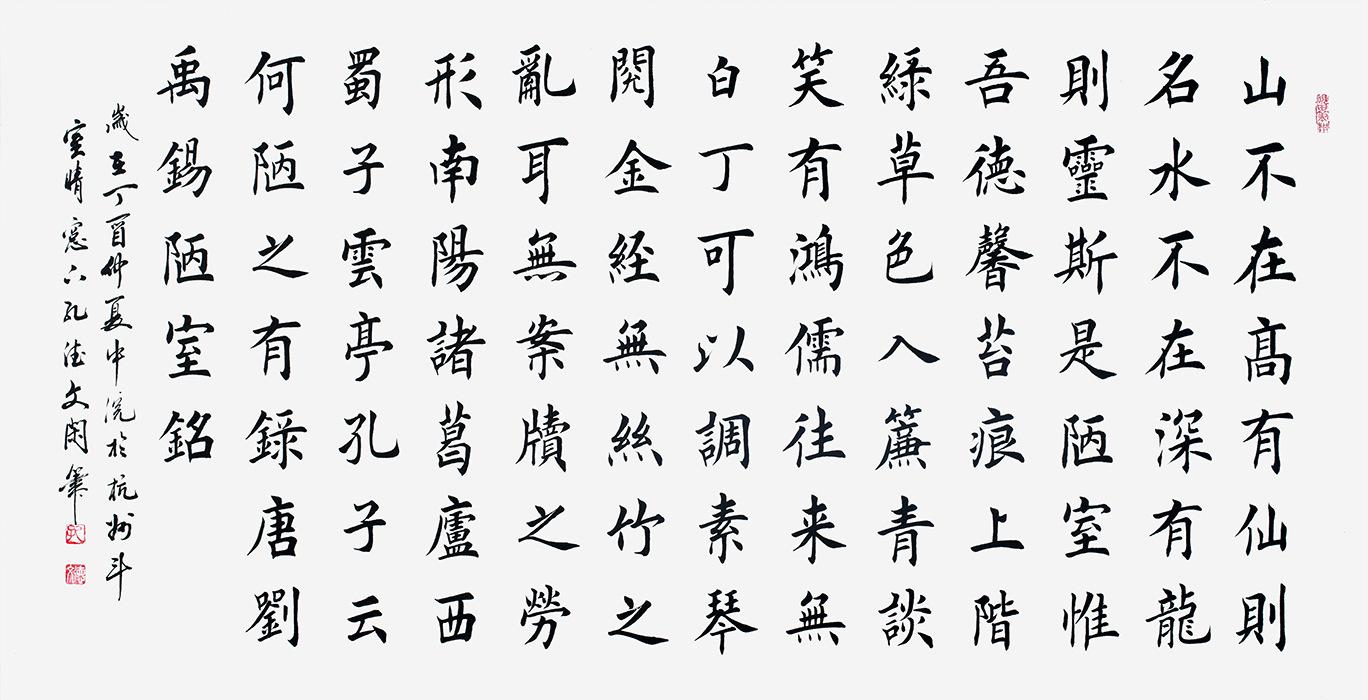 山不在髙有仙則
名水不在深有龍
則靈斯是陋室惟
吾德馨苔痕上階
緑草色入簾青談
笑有鴻儒往来無
白丁可以調素琴
閲金経無絲竹之
亂耳無案牘之勞
形南陽諸葛廬西
蜀子雲亭孔子云
何陋之有錄唐劉
禹錫陋室銘
歲在丁酉仲夏中浣於杭州斗
室晴窓下孔德文閑筆